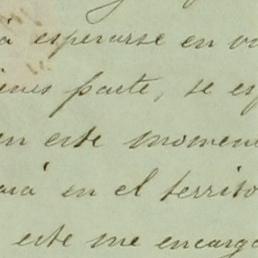 á esperarse en
parte, se es
en este momen
ará en el territo
este me encarga